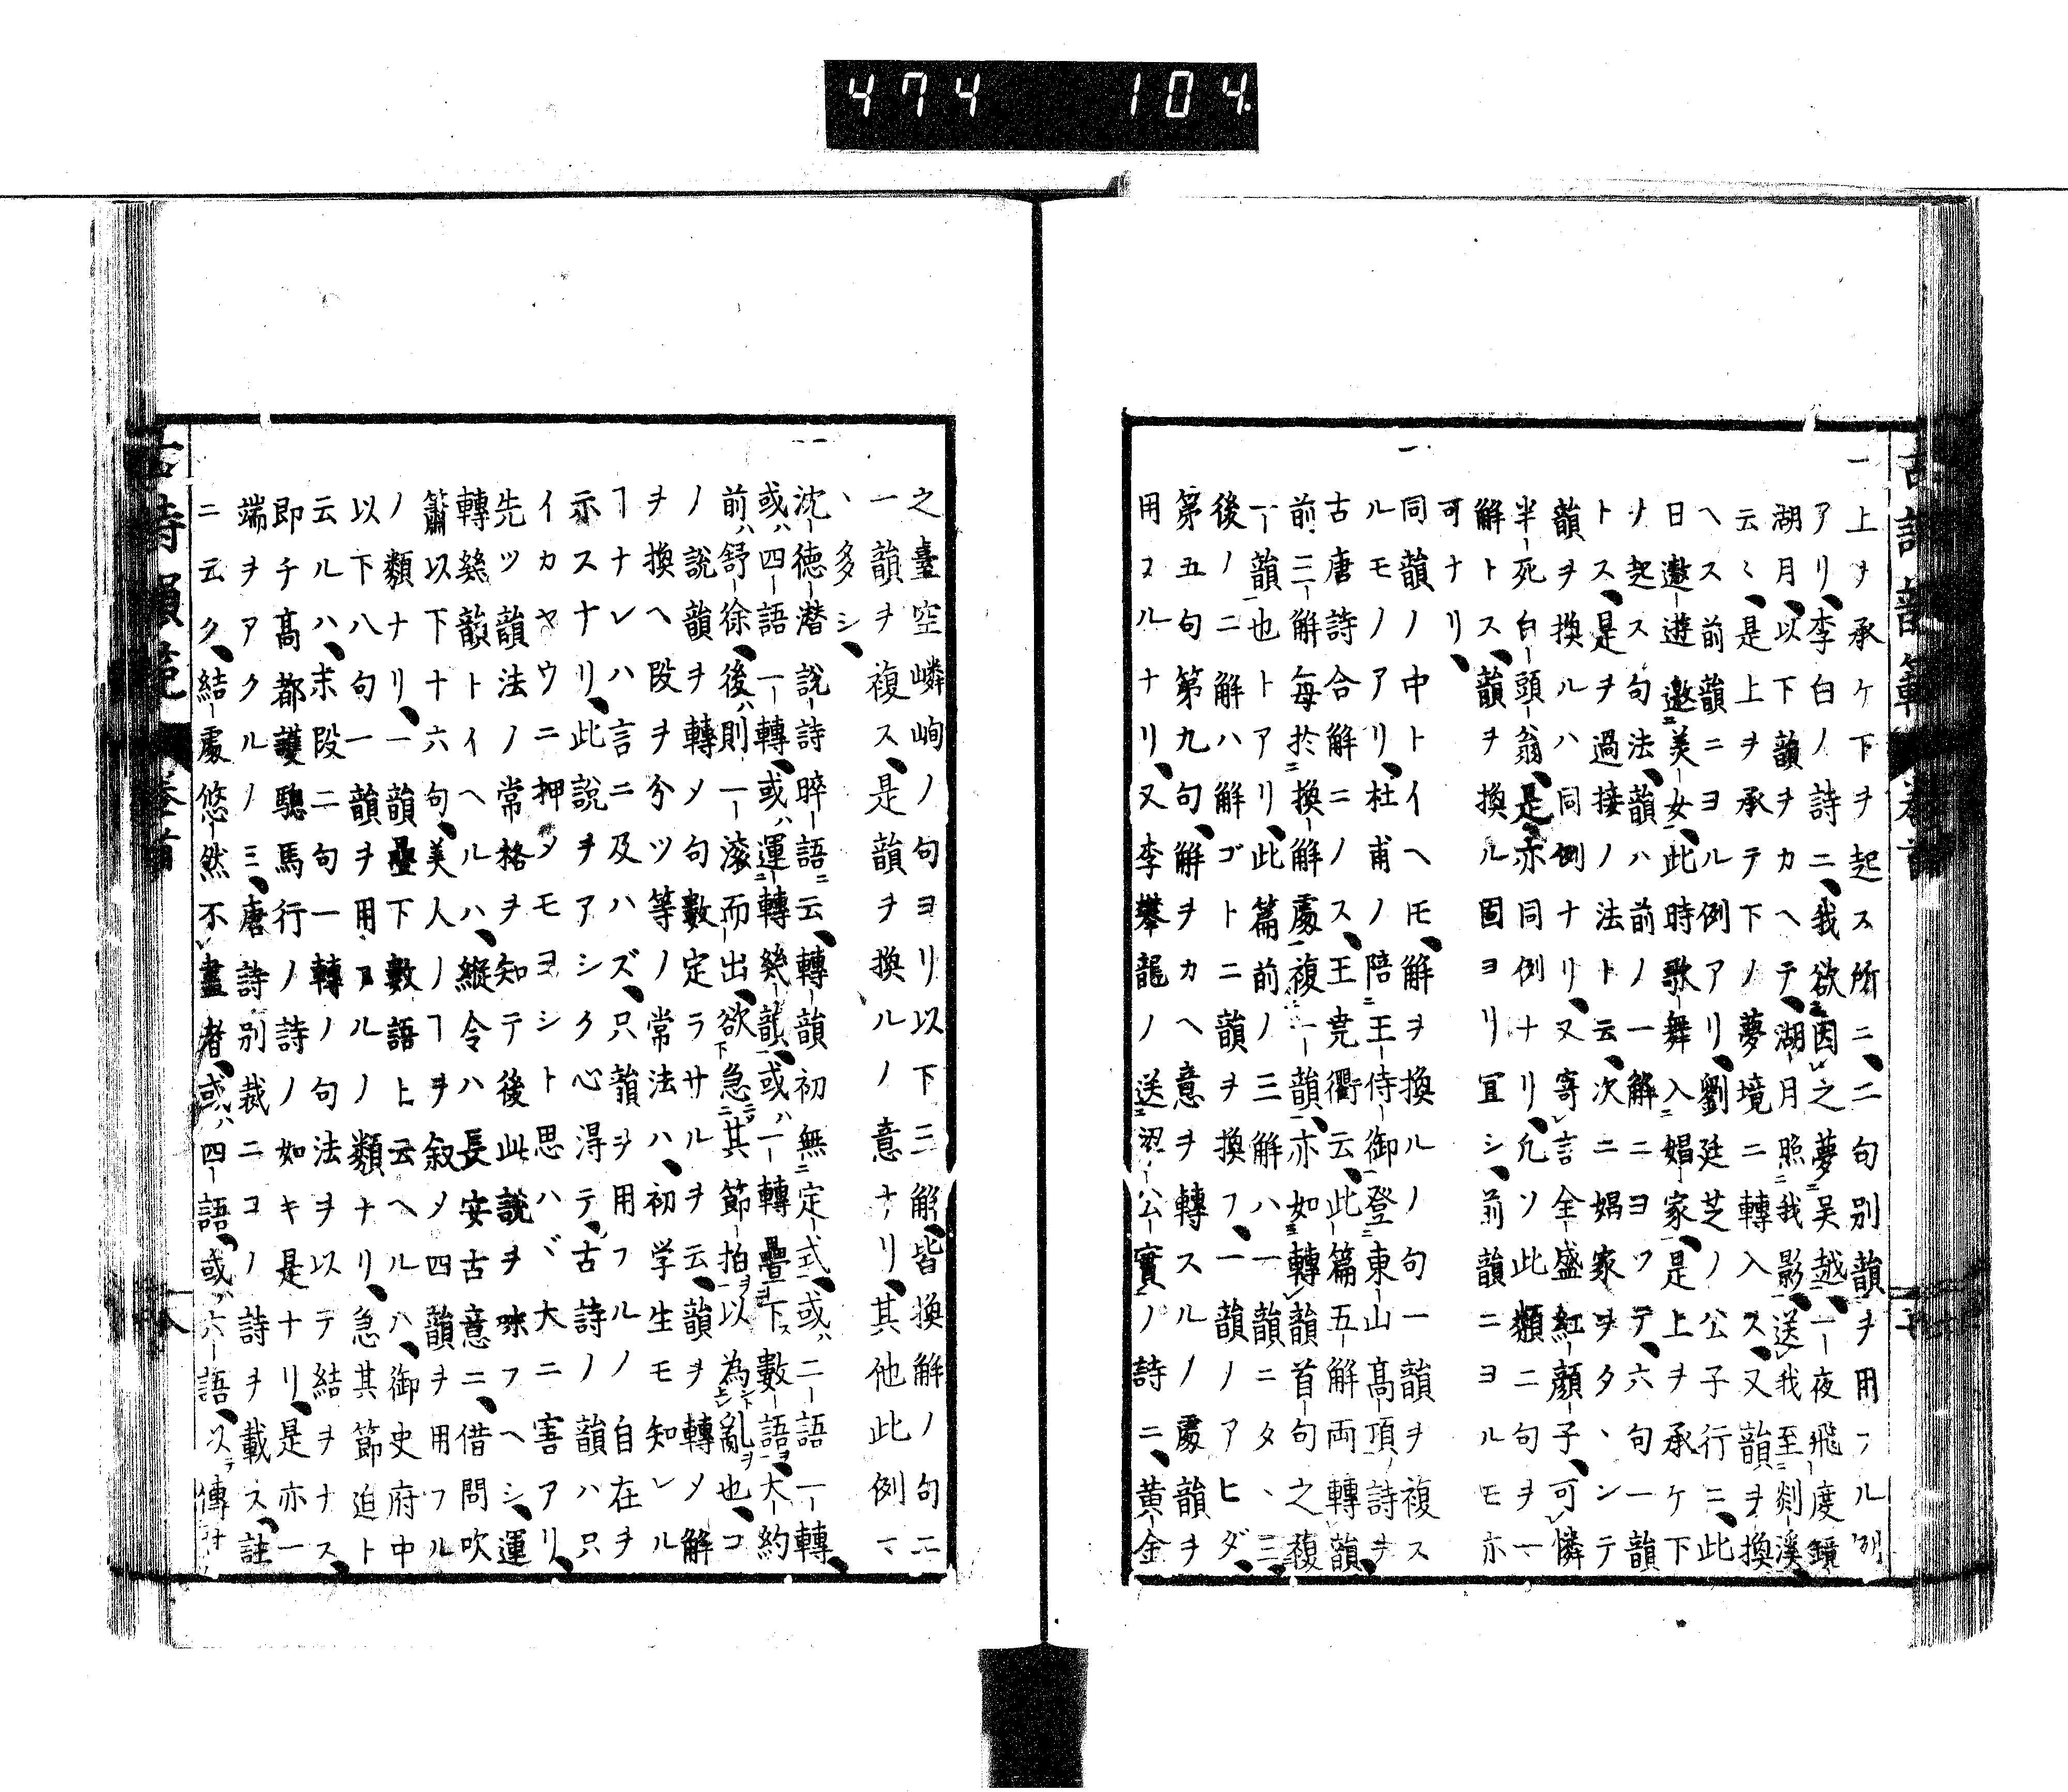 474 104.
古詩韻範 卷首
一上ヲ承ケ下ヲ起ス所ニ、二句別韻ヲ用フル例
アリ、李白ノ詩ニ、我欲因之夢吳越、一夜飛度鏡
湖月、以下韻ヲカヘテ、湖月照我影、送我至剡溪、
云〻、是上ヲ承テ下ノ夢境ニ轉入ス、又韻ヲ換
ヘス前韻ニヨル例アリ、劉廷芝ノ公子行ニ、此
日遨遊邀美女、此時歌舞入娼家、是上ヲ承ケ下
ヲ起ス句法、韻ハ前ノ一解ニヨツテ、六句一韻
トス、是ヲ過接ノ法ト云、次ニ娼家ヲタヽンテ
韻ヲ換ルハ同例ナリ、又寄言全盛紅顔子、可憐
半死白頭翁、是亦同例ナリ、凢ソ此類二句ヲ一
解トス、韻ヲ換ル固ヨリ冝シ、前韻ニヨルモ亦
可ナリ、
一同韻ノ中トイヘ𪜈、解ヲ換ルノ句一韻ヲ複ス
ルモノアリ、杜甫ノ陪王侍御登東山高頂詩ヲ
古唐詩合解ニノス、王尭衢云、此篇五解両轉韻、
前三解每於換解處複一韻、亦如轉韻首句之複
一韻也トアリ、此篇前ノ三解ハ一韻ニタヽ、三
後ノ二解ハ解ゴトニ韻ヲ換フ、一韻ノアヒダ、
第五句第九句、解ヲカヘ意ヲ轉スルノ處韻ヲ
用フルナリ、又李攀龍ノ送公實ノ詩ニ、黄金
之臺空嶙峋ノ句ヨリ以下三解、皆換解ノ句ニ
一韻ヲ複ス、是韻ヲ換ルノ意ナリ、其他此例マ
ヽ多シ、
一沈德潜說詩晬語云、轉韻初無定式、或ハ二語一轉、
或ハ四語一轉、或ハ運轉幾韻、或ハ一轉疊下ス數語ヲ、大約
前ハ舒徐、後ハ則一滚而出、欲急其節拍ヲ以為亂ヲ也、コ
ノ說韻ヲ轉メ句數定ラサルヲ云、韻ヲ轉メ解
ヲ換ヘ段ヲ分ツ等ノ常法ハ、初学生モ知レル
ヿナレハ言ニ及ハズ、只韻ヲ用フルノ自在ヲ
示スナリ、此說ヲアシク心得テ、古詩ノ韻ハ只
イカヤウニ押タモヨシト思ハヾ大ニ害アリ、
先ツ韻法ノ常格ヲ知テ後此說ヲ味フヘシ、運
轉幾韻トイヘルハ、縱令ハ長安古意ニ、借問吹
簫以下十六句、美人ノヿヲ叙メ四韻ヲ用フル
ノ類ナリ、一韻疊下數語ト云ヘルハ、御史府中
以下八句一韻ヲ用フルノ類ナリ、急其節迫ト
云ルハ、末段二句一轉ノ句法ヲ以テ結ヲナス、
即チ高都護驄馬行ノ詩ノ如キ是ナリ、是亦一
端ヲアクルノミ、唐詩別裁ニコノ詩ヲ載ス、註
ニ云ク、結處悠然不盡者、或ハ四語、或ハ六語、以テ傳
古詩韻範 卷首